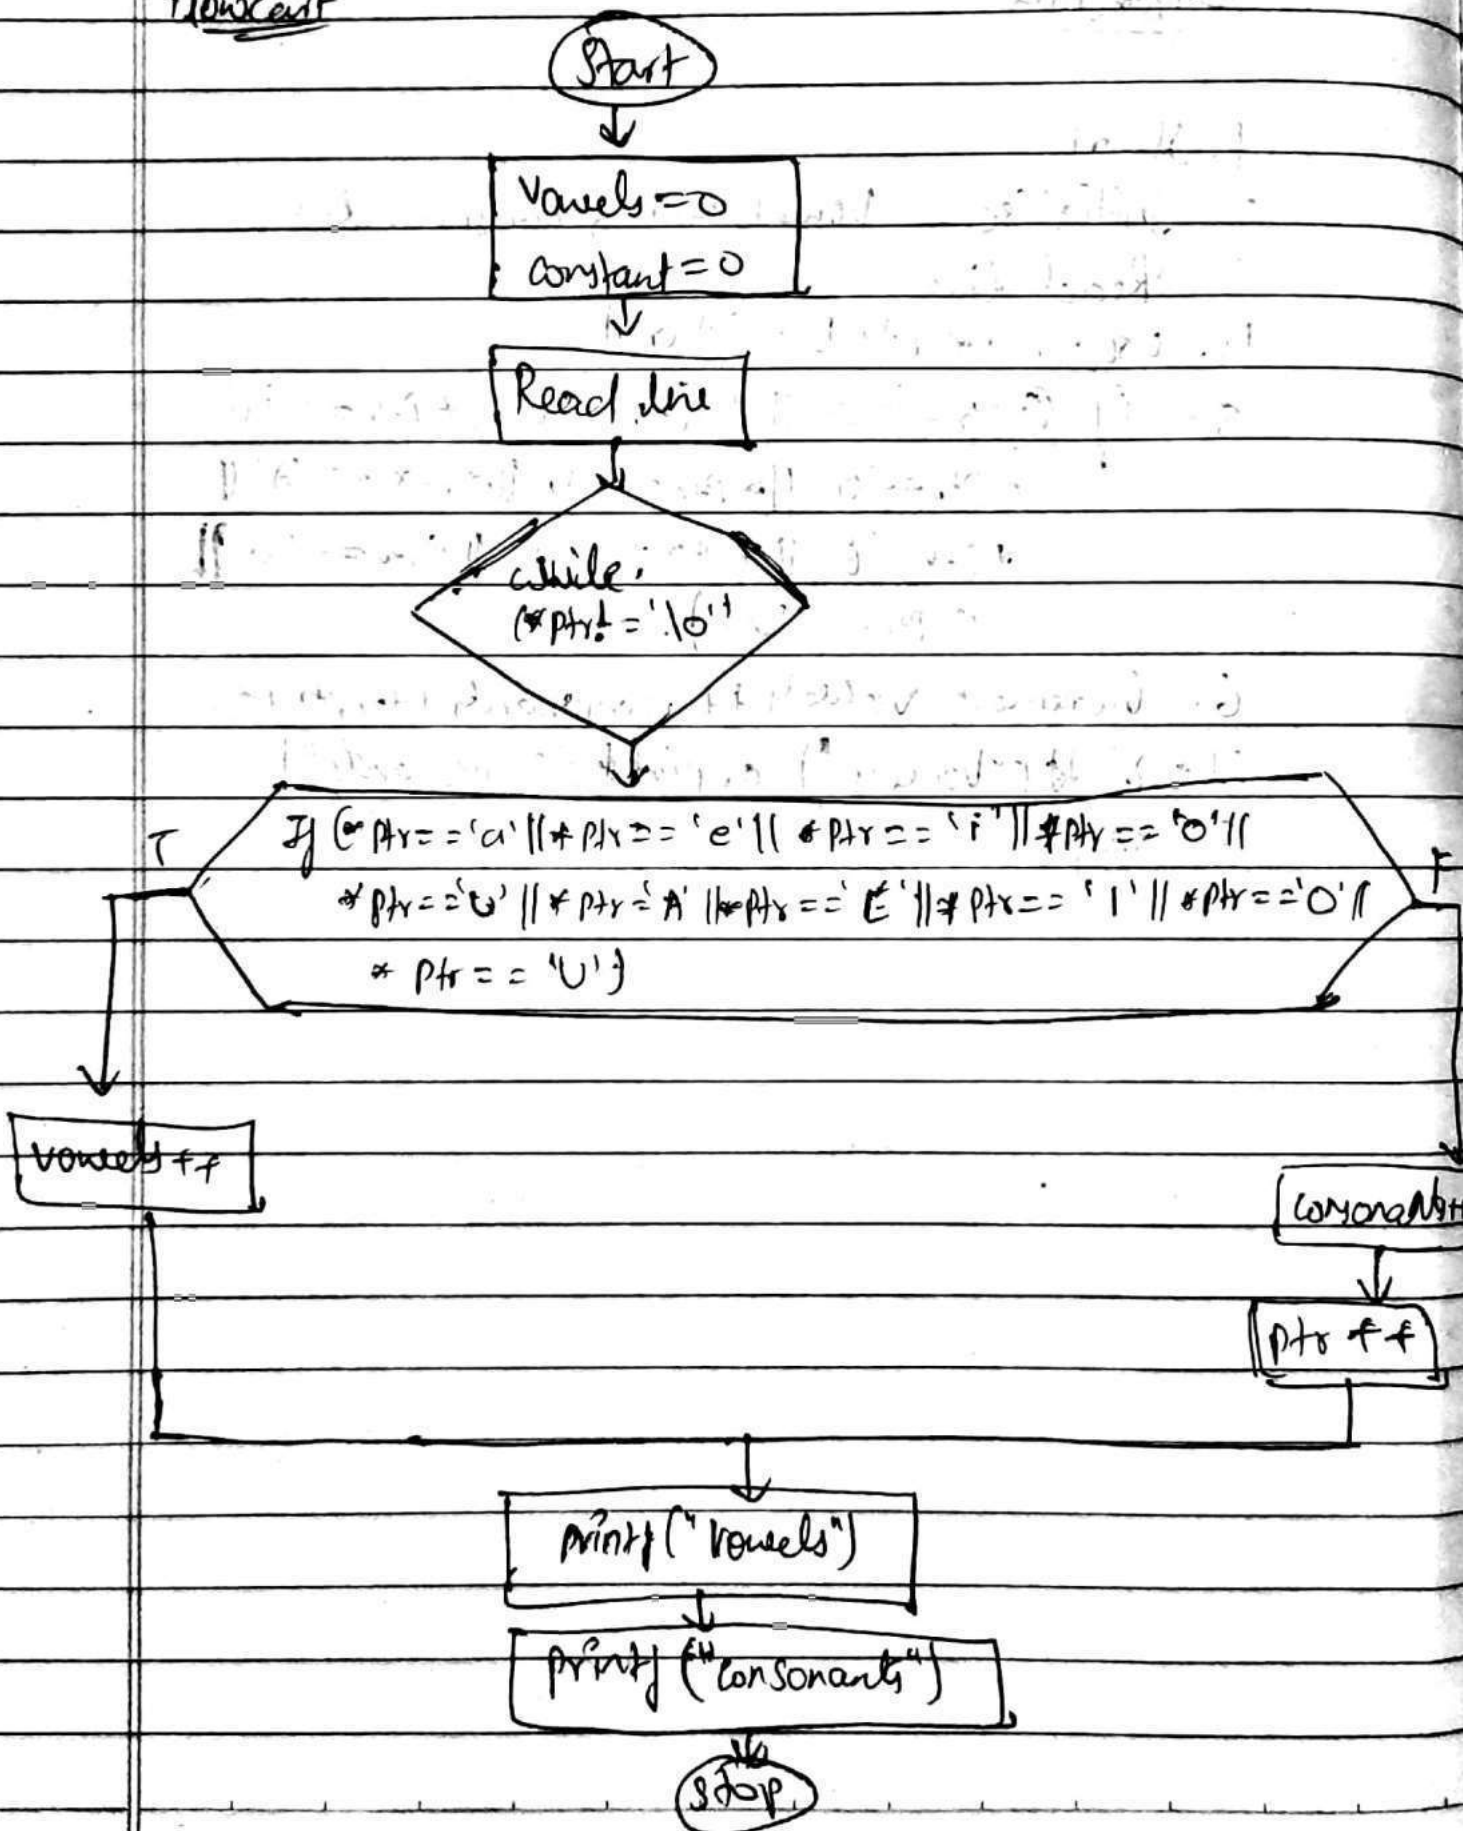 Flowcart
Start
Vowels=0
constant=0
Read line
while
(*ptr!='\0''
T
F
If (*ptr=='a'||*ptr=='e'|| *ptr=='i'||*ptr=='o'||
*ptr=='u'||*ptr='A'||*ptr=='E'||*ptr=='I'||*ptr=='O'||
*ptr=='U')
vowels++
consonants++
ptr++
printf("vowels")
printf("consonants")
stop